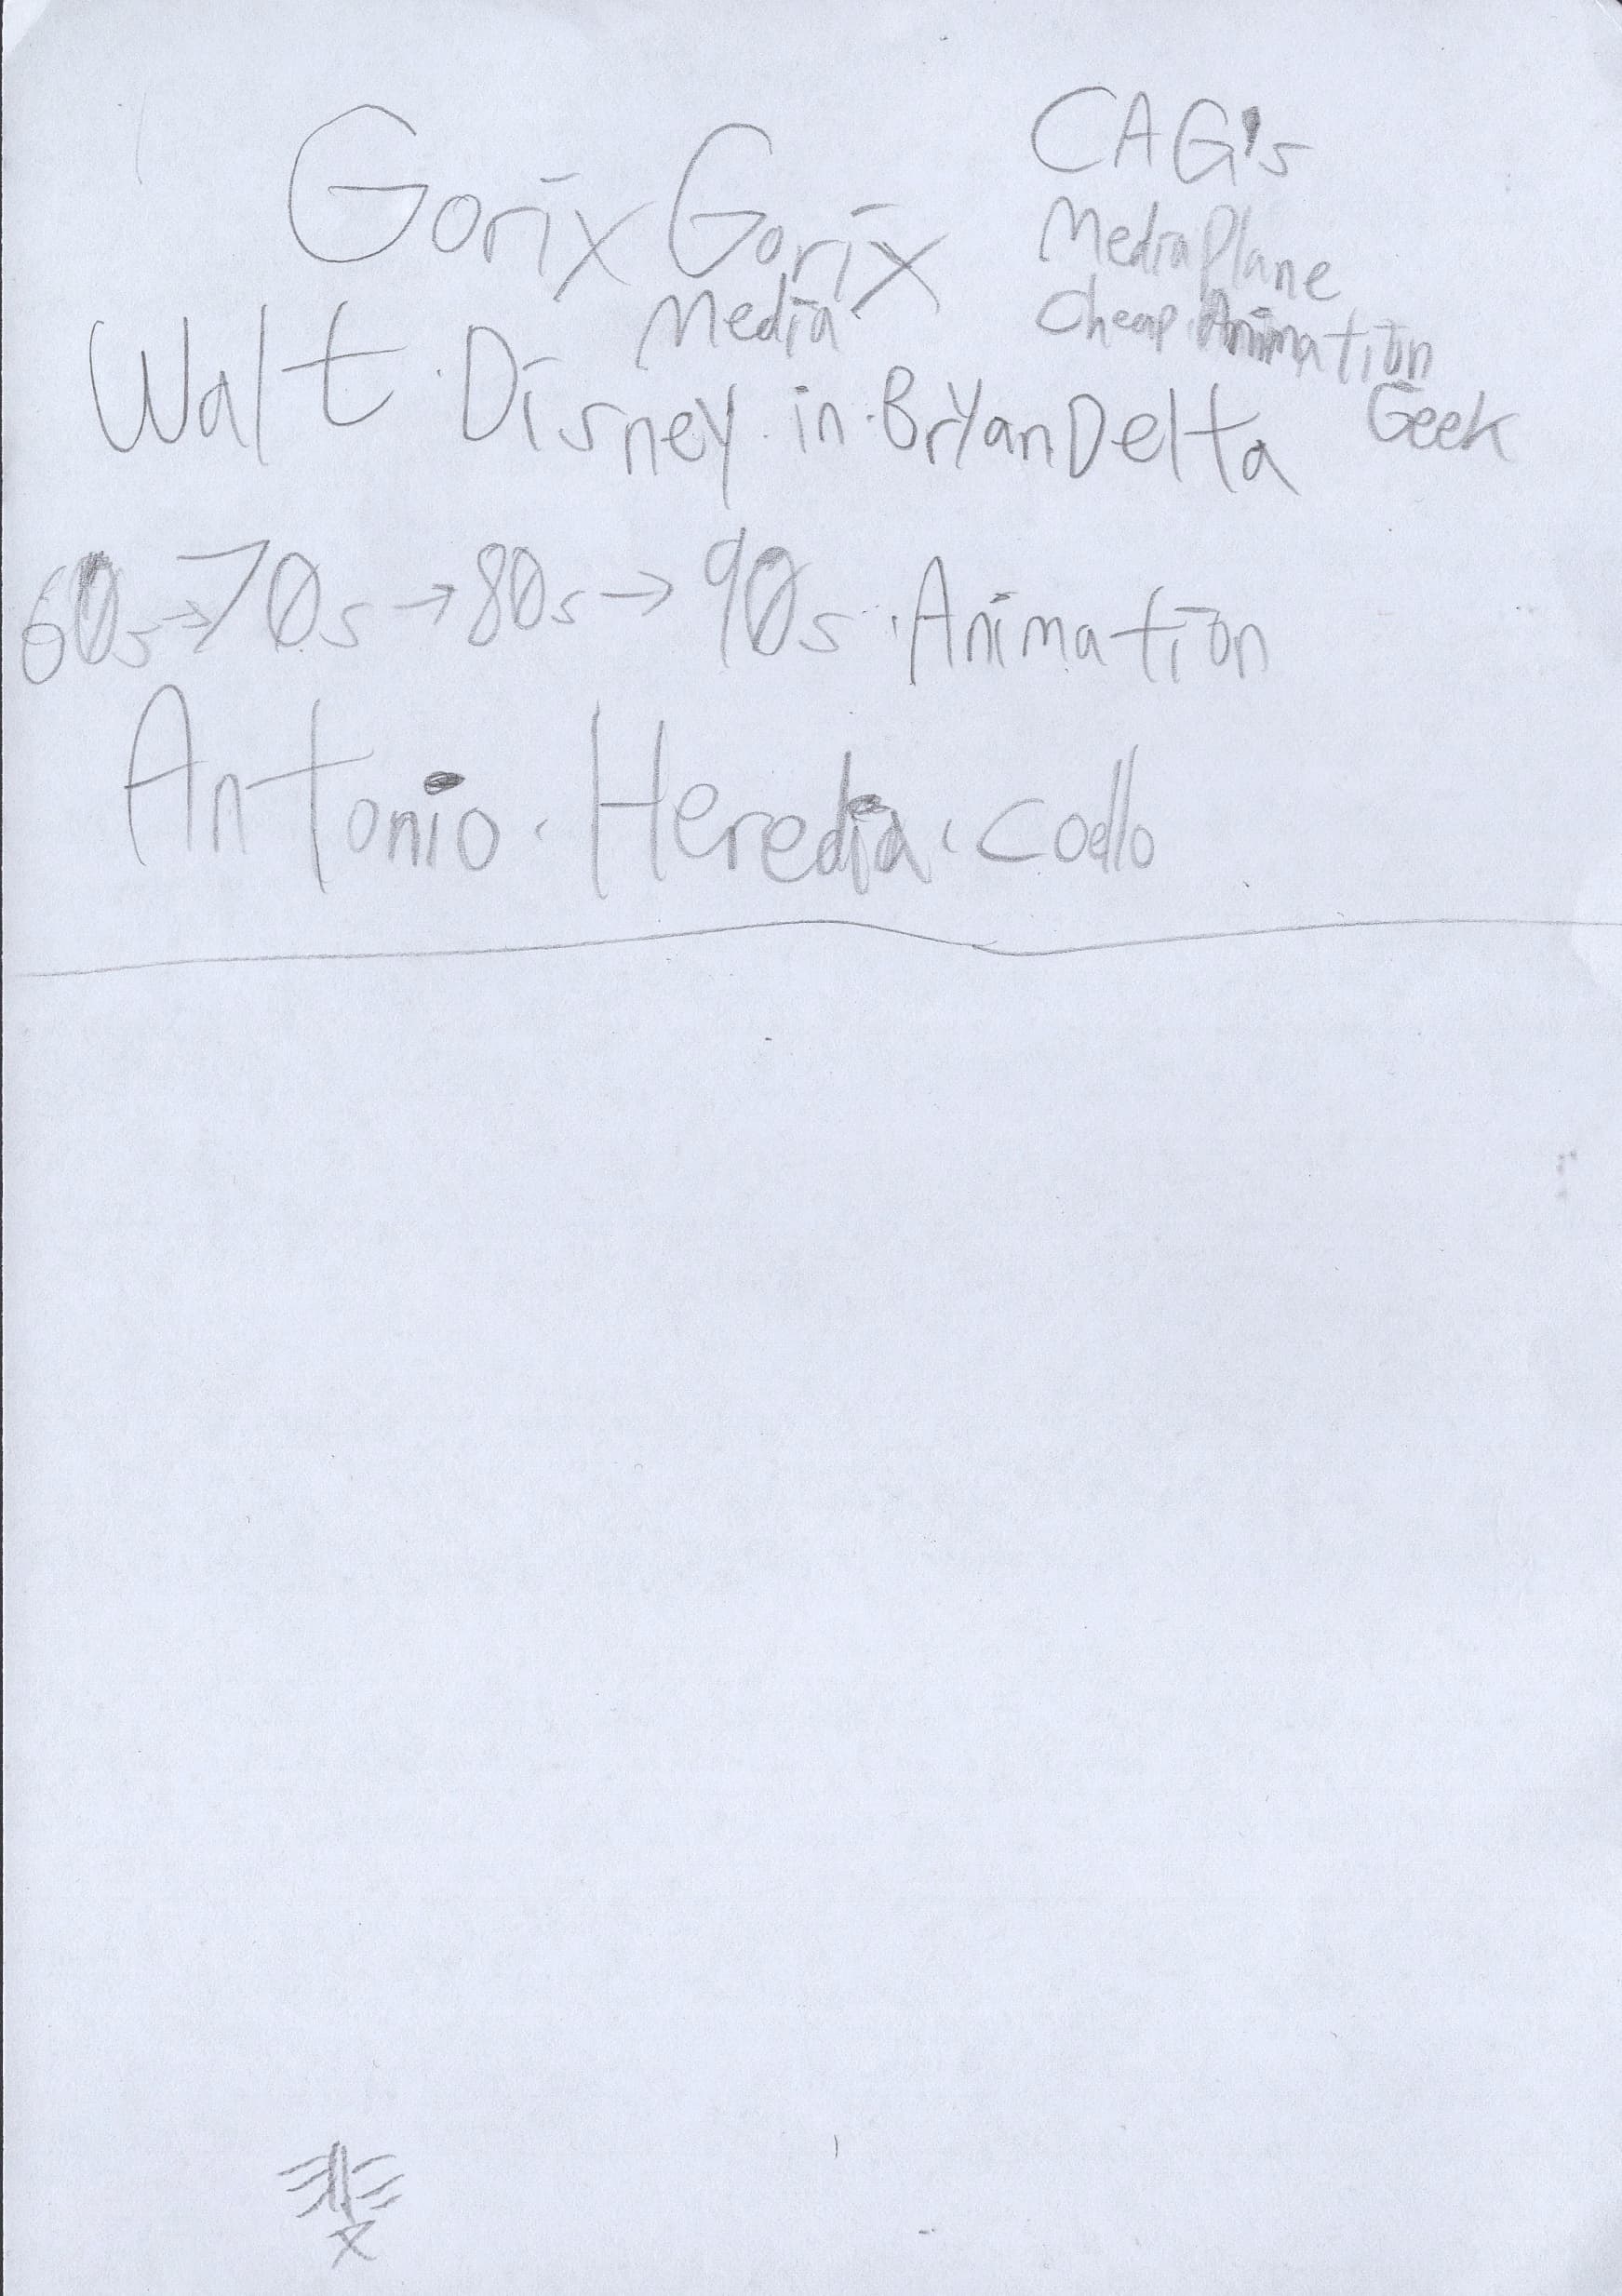 Gorix Gorix
Media
CAG's
Media Plane
Cheap Animation
Geek
Walt Disney in BryanDelta
60s→70s→80s→90s Animation
Antonio Heredia Coello